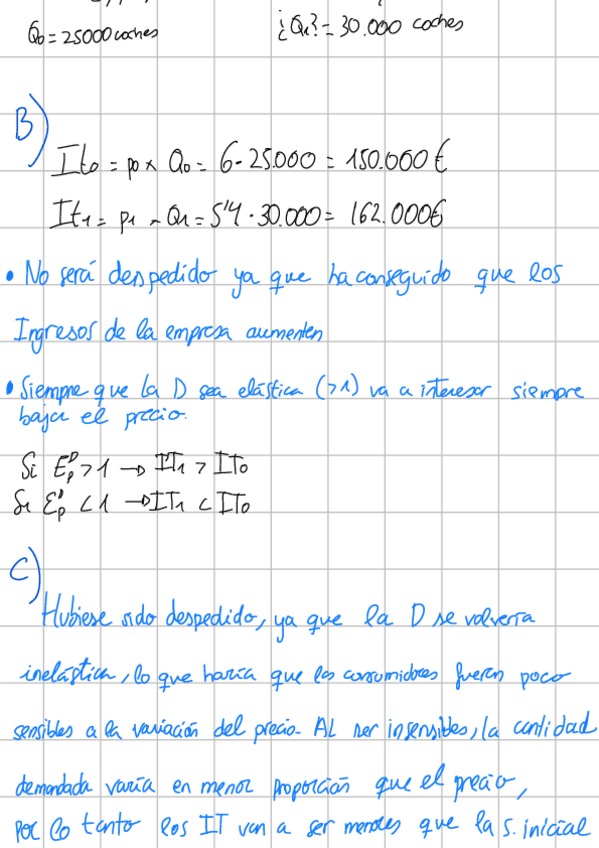 Q₀ = 25000 coches ¿Q₁? = 30.000 coches
B)
It₀ = p₀ x Q₀ = 6 · 25.000 = 150.000 €
It₁ = p₁ x Q₁ = 5'4 · 30.000 = 162.000€
• No será despedido ya que ha conseguido que los
Ingresos de la empresa aumenten
• Siempre que la D sea elástica (>1) va a interesar siempre
bajar el precio.
Si Eᴰₚ > 1 → IT₁ > IT₀
Si Eᴰₚ < 1 → IT₁ < IT₀
C)
Hubiese sido despedido, ya que la D se volvería
inelástica, lo que haría que los consumidores fueran poco
sensibles a la variación del precio. AL ser insensibles, la cantidad
demandada varía en menor proporción que el precio,
por lo tanto los IT van a ser menores que la s. inicial